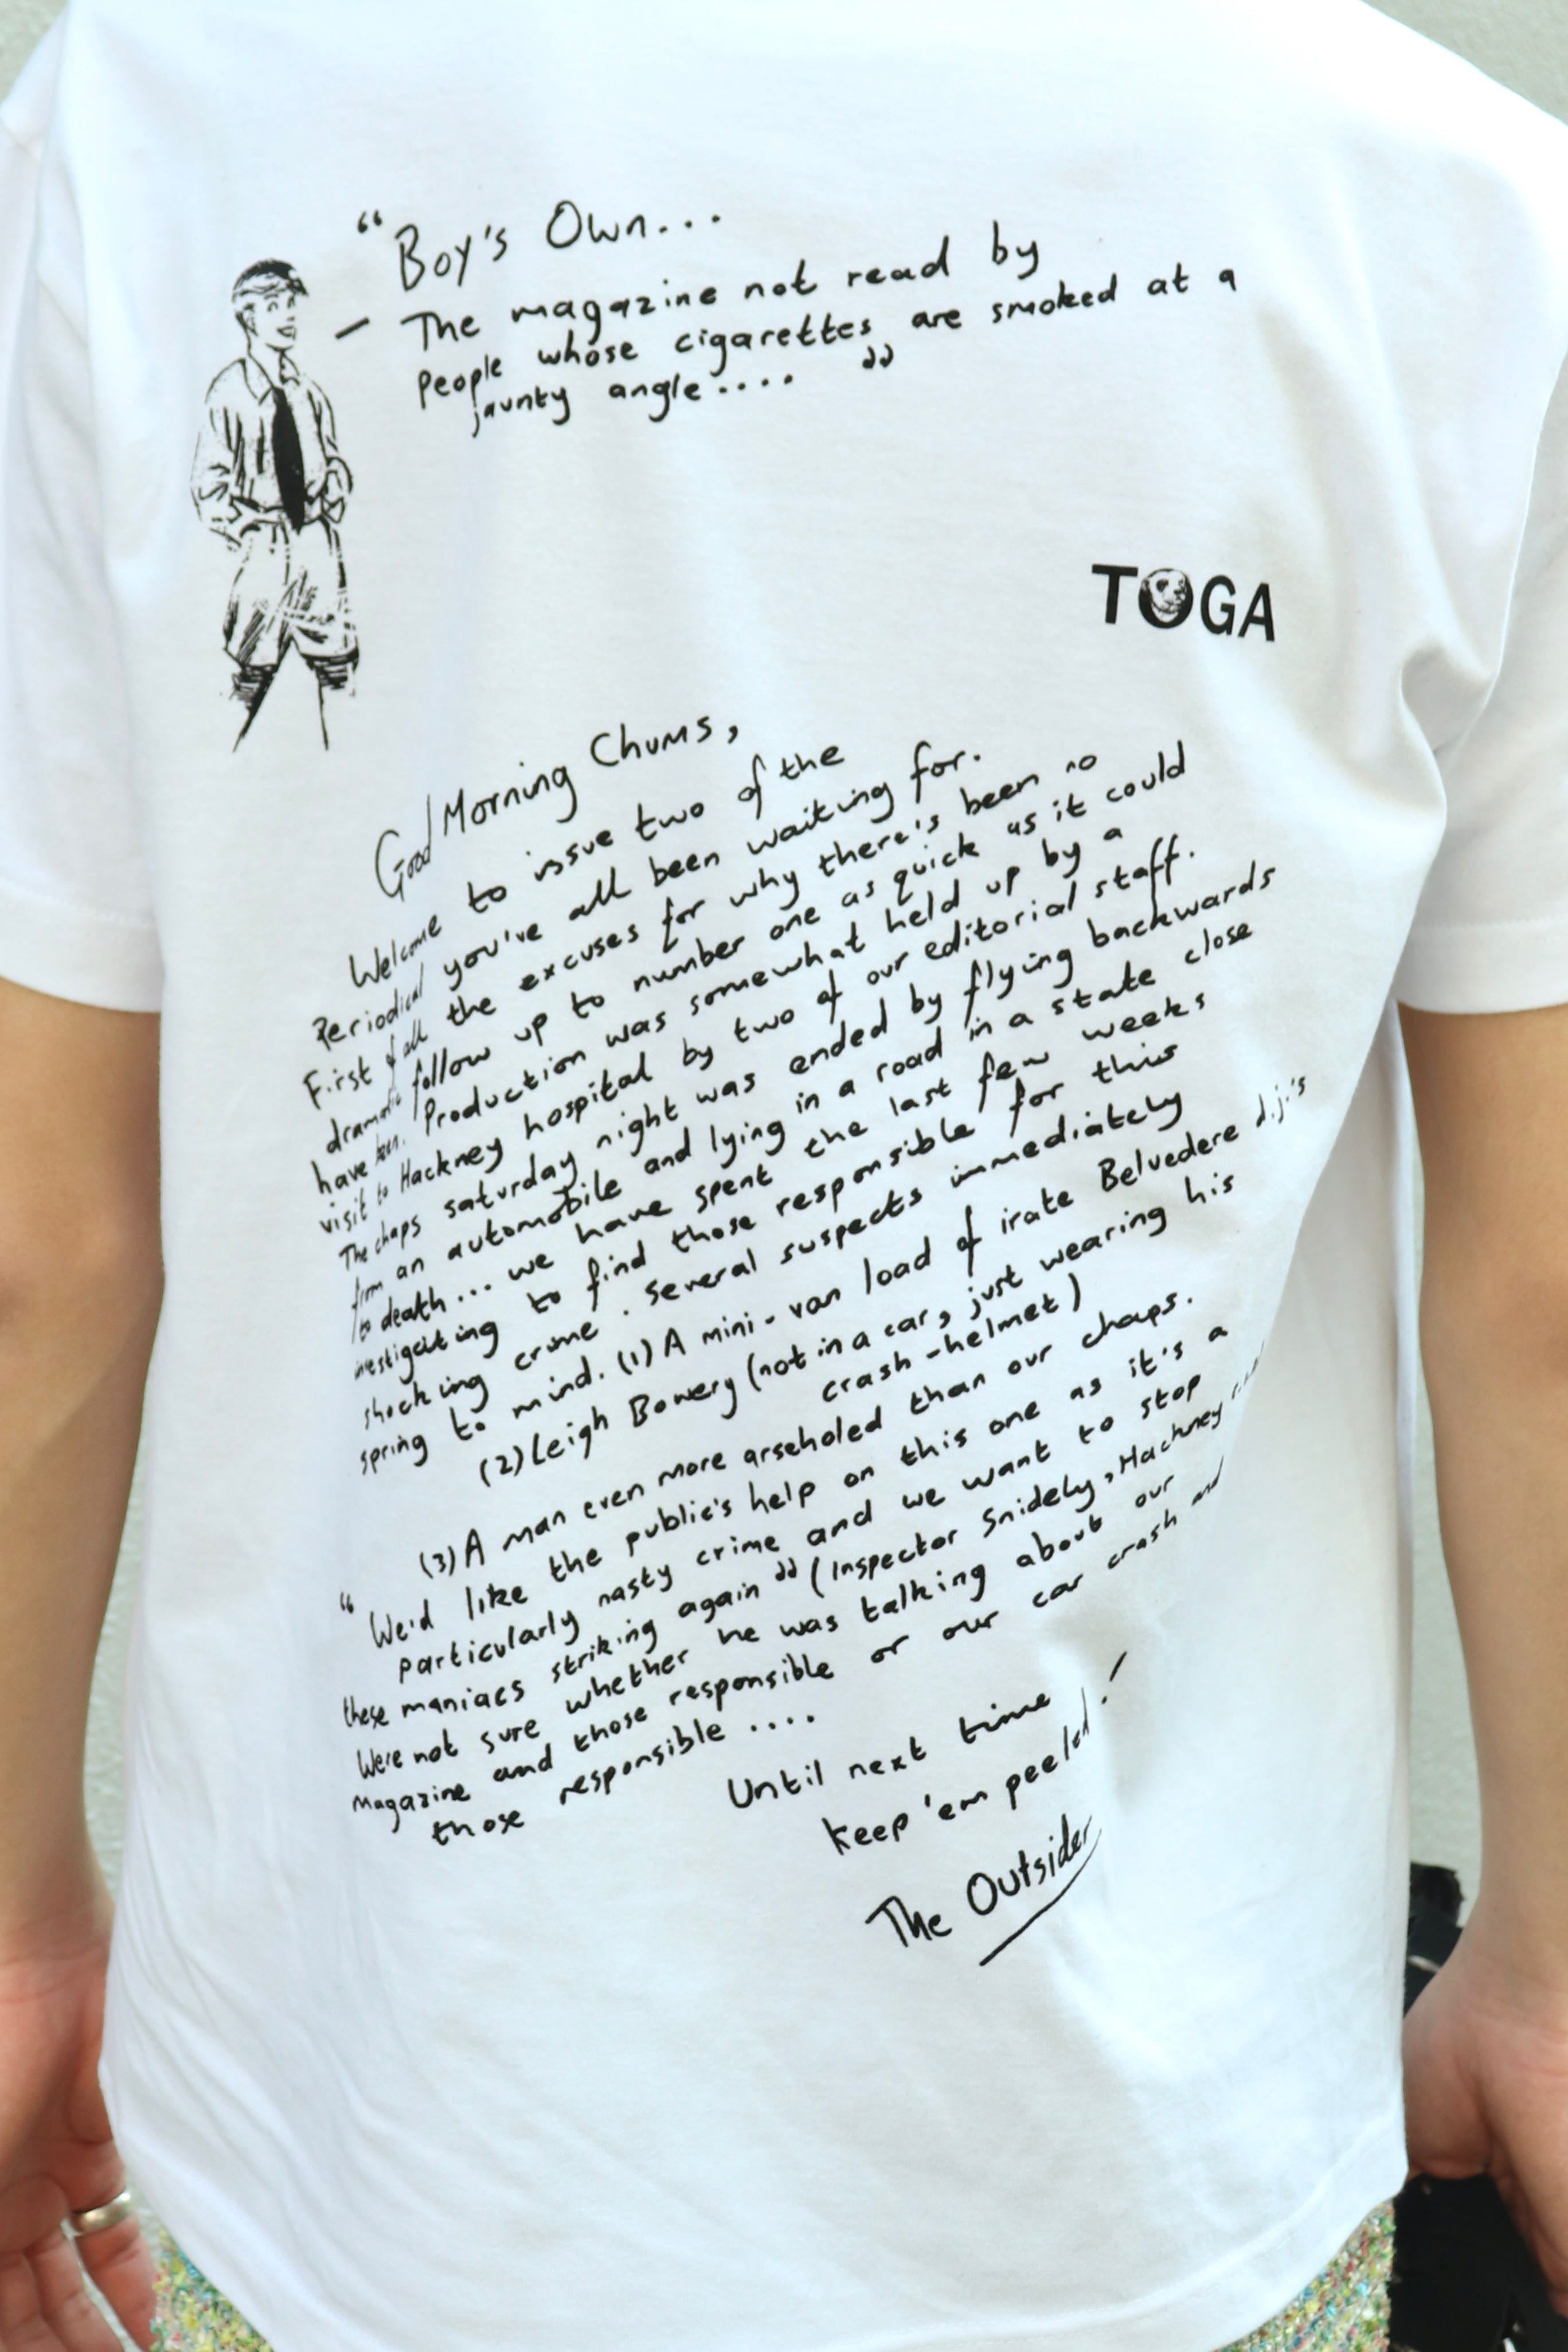 “Boy's Own...
– The magazine not read by
People whose cigarettes are smoked at a
jaunty angle.... ”
TOGA
Good Morning Chums,
Welcome to issue two of the
Periodical you've all been waiting for.
First of all the excuses for why there's been no
dramatic follow up to number one as quick as it could
have been. Production was somewhat held up by a
visit to Hackney hospital by two of our editorial staff.
The chaps saturday night was ended by flying backwards
from an automobile and lying in a road in a state close
to death... we have spent the last few weeks
investigating to find those responsible for this
shocking crime. Several suspects immediately
spring to mind. (1) A mini-van load of irate Belvedere d.j.'s
(2) Leigh Bowery (not in a car, just wearing his
crash-helmet)
(3) A man even more arseholed than our chaps.
“ We'd like the public's help on this one as it's a
particularly nasty crime and we want to stop
these maniacs striking again ” (Inspector Snidely, Hackney
We're not sure whether he was talking about our
Magazine and those responsible or our car crash and
those responsible ....
Until next time
keep 'em peeled!
The Outsider